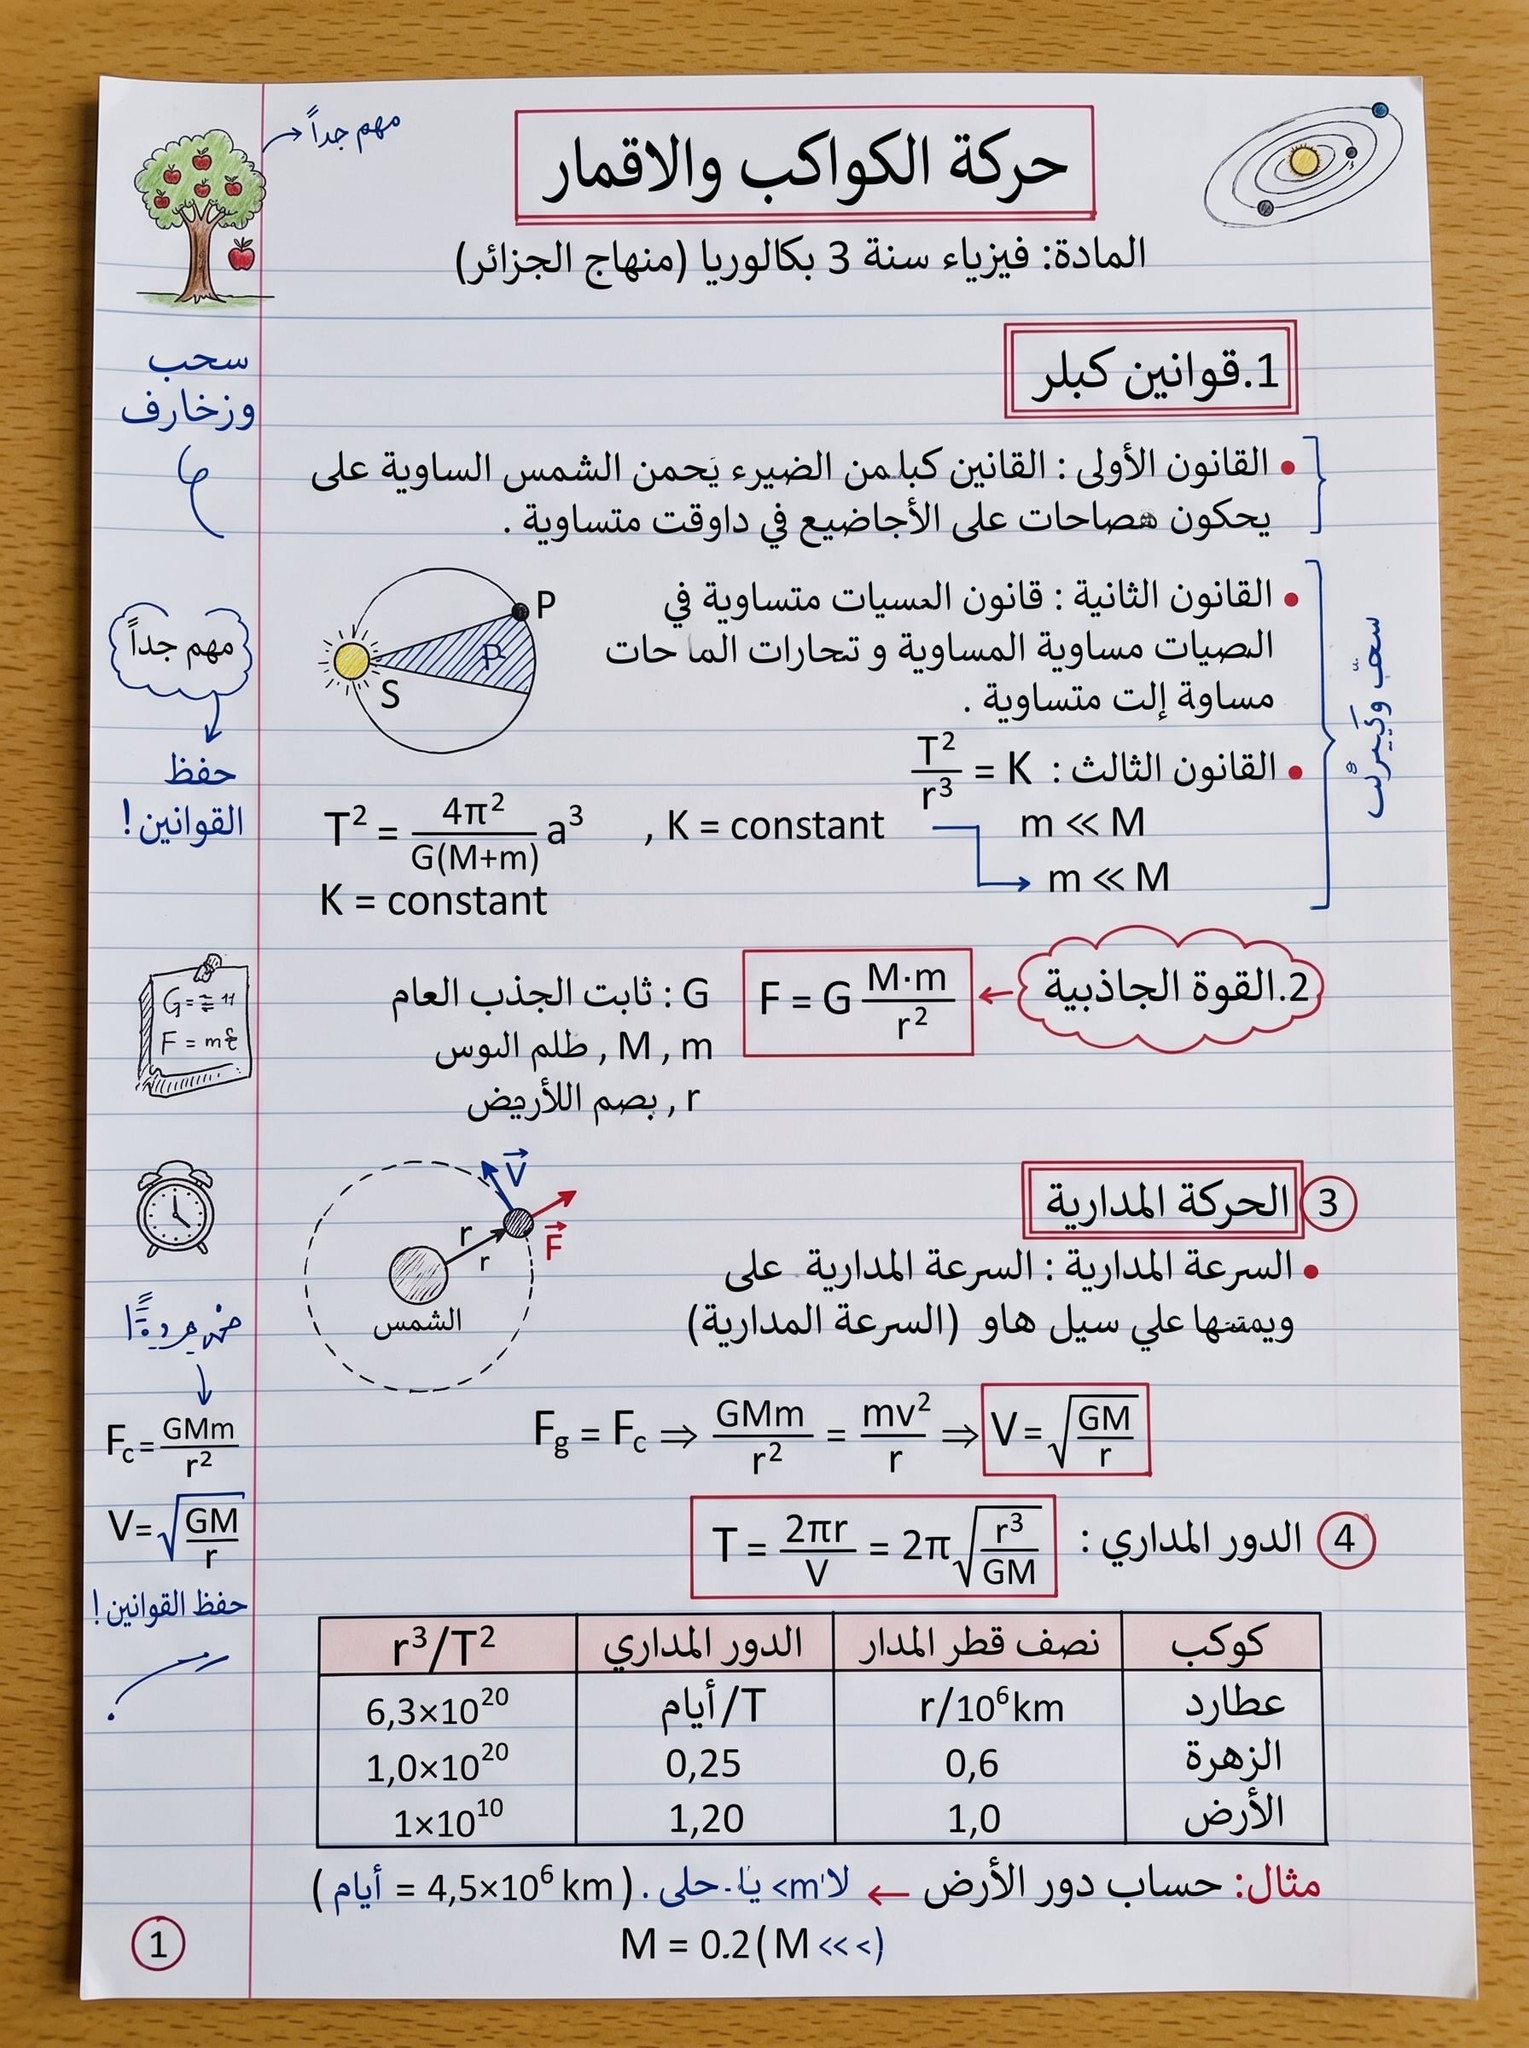 حركة الكواكب والاقمار
مهم جداً
المادة: فيزياء سنة 3 بكالوريا (منهاج الجزائر)
1.قوانين كبلر
سحب
وزخارف
• القانون الأولى : القانين كبلمن الضيرء يَحمن الشمس الساوية على
يحكون هصاحات على الأجاضيع في داوقت متساوية .
• القانون الثانية : قانون العسيات متساوية في
الصيات مساوية المساوية و تحارات الما حات
مساوة إلت متساوية .
P
P
S
مهم جداً
حفظ
القوانين!
• القانون الثالث : T²/r³ = K
T² = 4π²/G(M+m) a³ , K = constant
m ≪ M
m ≪ M
K = constant
2.القوة الجاذبية
F = G M·m/r²
G : ثابت الجذب العام
M , m , طلم البوس
r , بصم اللأريض
3 الحركة المدارية
• السرعة المدارية : السرعة المدارية على
ويمتنها علي سيل هاو (السرعة المدارية)
V
F
r
r
الشمس
Fg = Fc ⇒ GMm/r² = mv²/r ⇒ V = √GM/r
Fc = GMm/r²
V = √GM/r
حفظ القوانين!
4 الدور المداري : T = 2πr/V = 2π√r³/GM
كوكب نصف قطر المدار الدور المداري r³/T²
عطارد r/10⁶km T/أيام 6,3×10²⁰
الزهرة 0,6 0,25 1,0×10²⁰
الأرض 1,0 1,20 1×10¹⁰
مثال: حساب دور الأرض ← (أيام = 4,5×10⁶ km)
M = 0.2(M <<<)
1